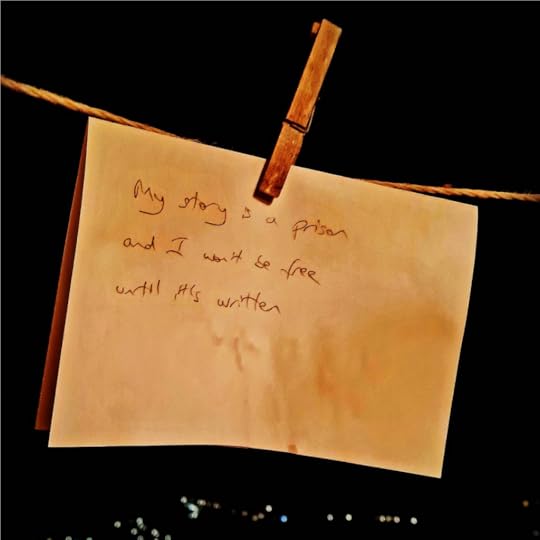 My story is a prison
and I won't be free
until it's written